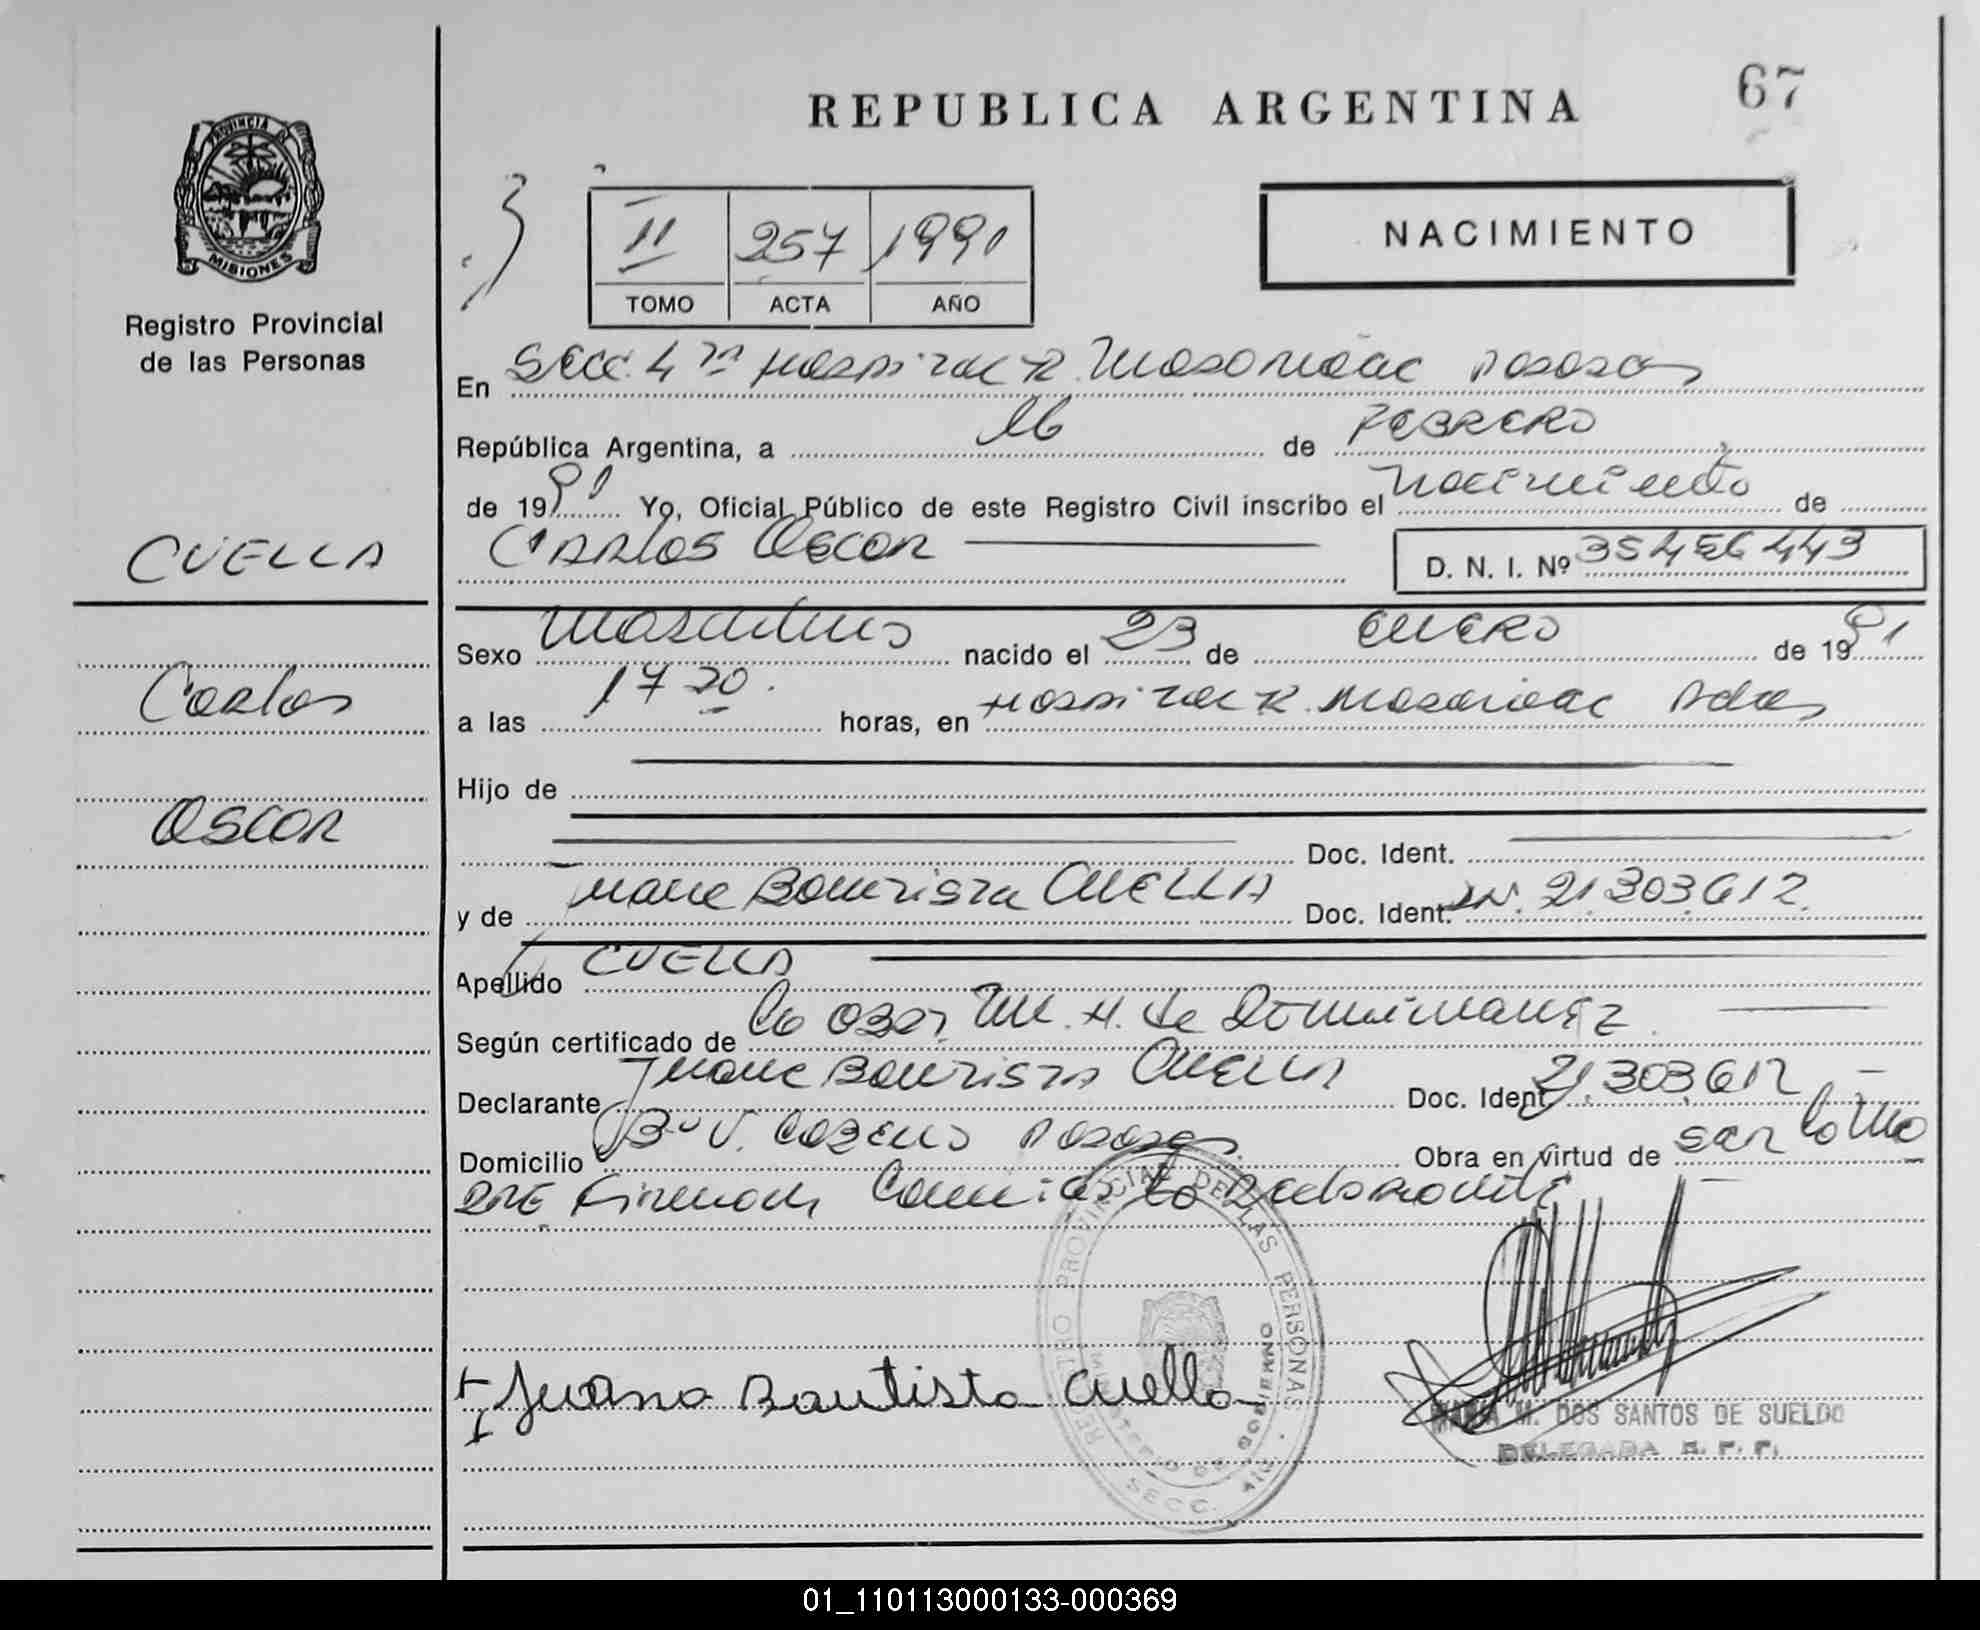 REPUBLICA ARGENTINA
67
PROVINCIA DE
MISIONES
Registro Provincial
de las Personas
II 257 1991
TOMO ACTA AÑO
NACIMIENTO
En Secc. 4ta Hospital R. Madariaga Posadas
República Argentina, a 26 de FEBRERO
de 1991 Yo, Oficial Público de este Registro Civil inscribo el Nacimiento de
CUELLA
CARLOS OSCAR D. N. I. Nº 35456443
Sexo Masculino nacido el 23 de ENERO de 1991
Carlos
a las 17 20 horas, en Hospital R. Madariaga Pdas
Hijo de
OSCAR
Doc. Ident.
y de Juana Bautista CUELLA Doc. Ident. 21.303.612
Apellido CUELLA
Según certificado de la Obst. M. H. de
Declarante Juana Bautista CUELLA Doc. Ident. 21.303.612
Domicilio Bº V. Cabello Posadas Obra en virtud de ser la Ma
dre Firmando la Declarante
REGISTRO PROVINCIAL DE LAS PERSONAS
MINISTERIO DE GOBIERNO
SECC. 4ta.
Juana Bautista Cuella
MARIA M. DOS SANTOS DE SUELDO
DELEGADA R. P. P.
01_110113000133-000369